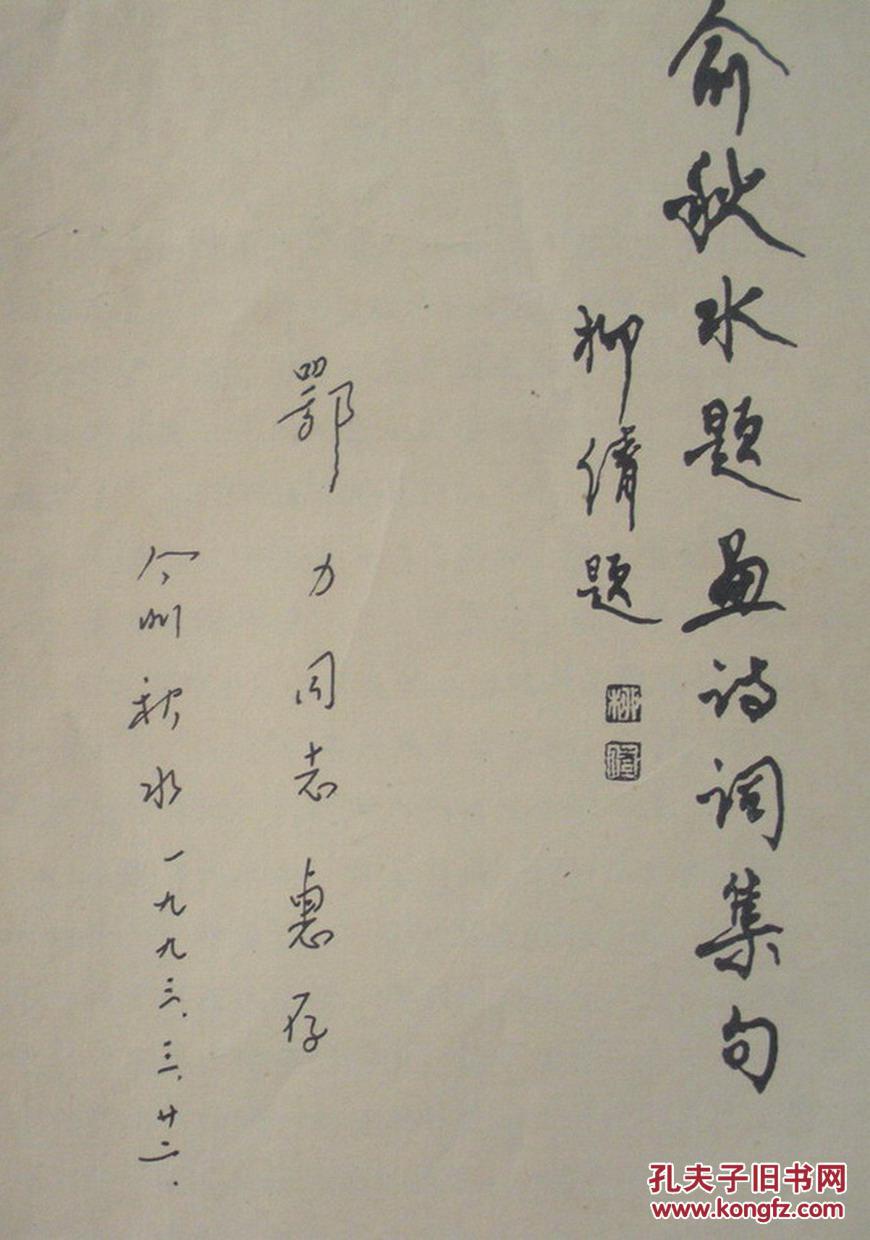 俞秋水题画诗词集句
柳倩题
柳
倩
鄂力同志惠存
俞秋水一九九三.三.廿二.
孔夫子旧书网
www.kongfz.com